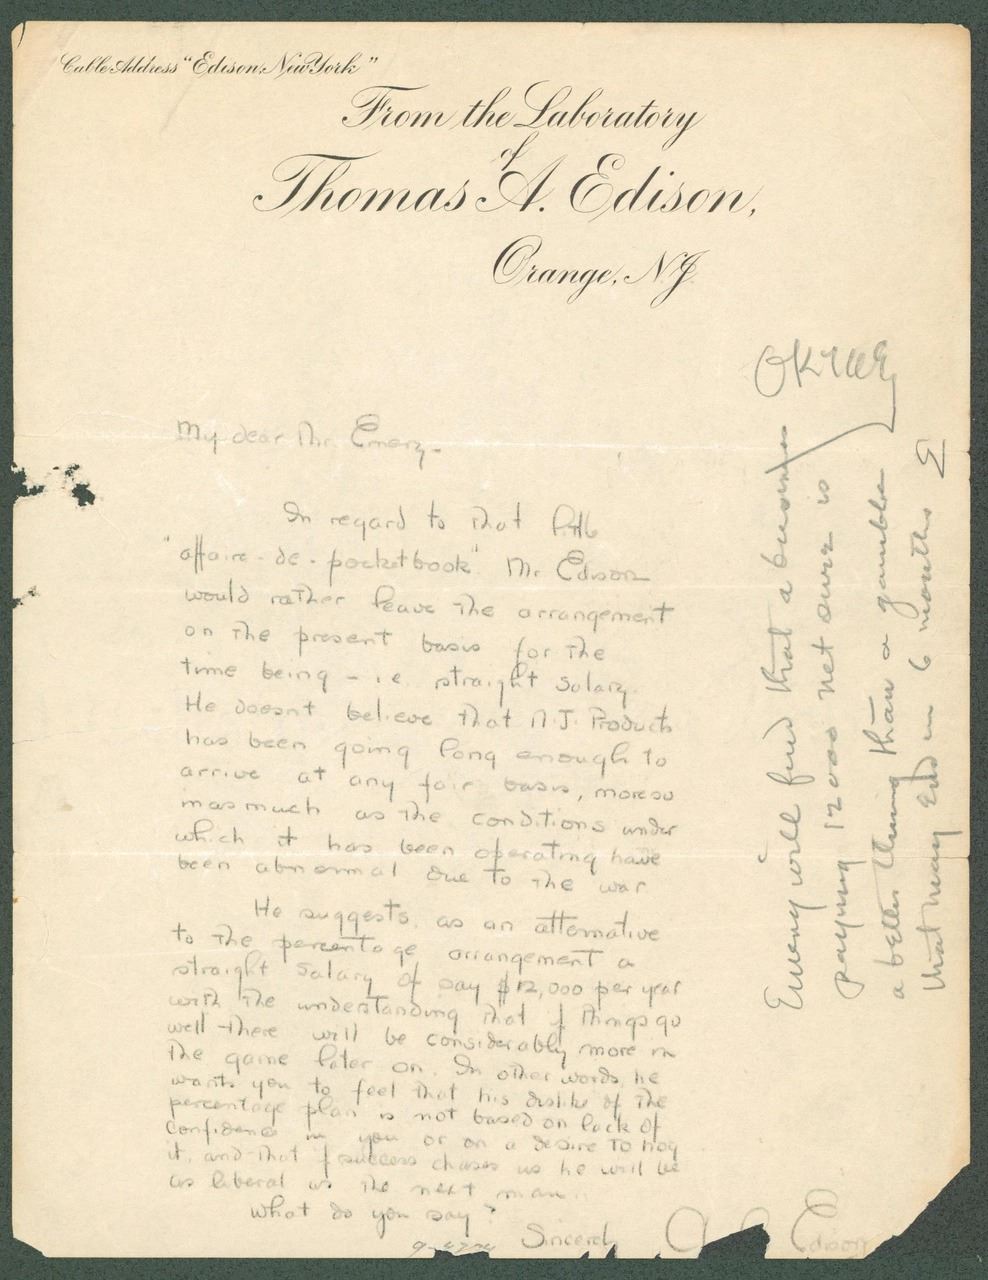 Cable Address "Edison, New York"
From the Laboratory
of
Thomas A. Edison,
Orange, N.J.
My dear Mr. Emery-
In regard to that little
"affaire-de-pocketbook" Mr Edison
would rather leave the arrangement
on the present basis for the
time being - i.e. straight salary.
He doesnt believe that N.J. Products
has been going long enough to
arrive at any fair basis, moreso
inasmuch as the conditions under
which it has been operating have
been abnormal due to the war
He suggests, as an alternative
to the percentage arrangement a
straight salary of say $12,000 per year
with the understanding that if things go
well there will be considerably more in
the game later on. In other words, he
wants you to feel that his dislike of the
percentage plan is not based on lack of
confidence in you or on a desire to hog
it, and that if success chases us he will be
as liberal as the next man.
What do you say?
Sincerely
Edison
OK
Emery will find that a business
paying 12000 net sure is
a better thing than a gamble
that may End in 6 months E